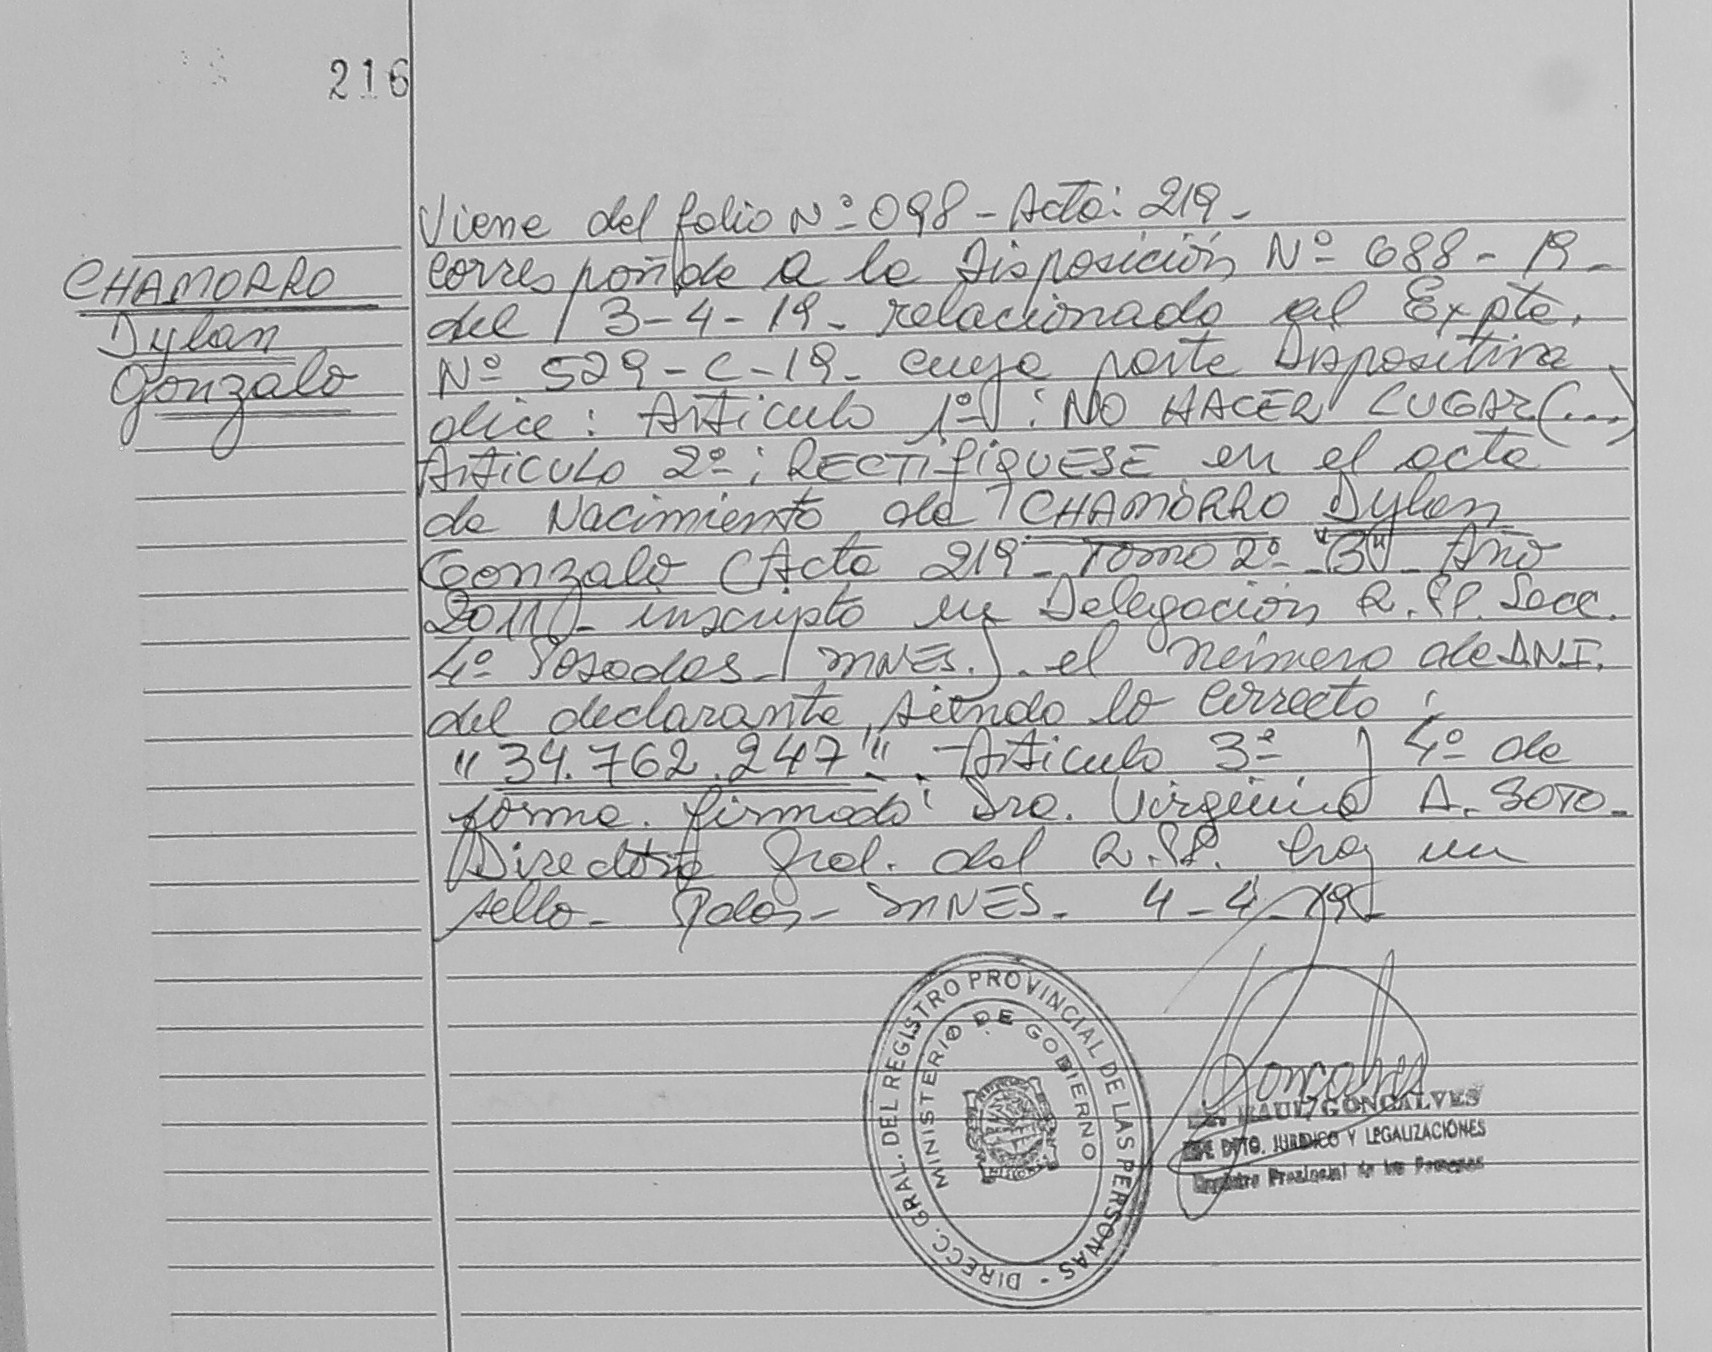 216
Viene del folio Nº 098 - Acta: 219 -
CHAMORRO
Dylan
Gonzalo
corresponde a la Disposición Nº 688 - 19 -
del 3-4-19 - relacionado al Expte.
Nº 529-C-19 - cuya parte Dispositiva
dice: Artículo 1º: NO HACER LUGAR (...)
ARTICULO 2º: RECTIFIQUESE en el acta
de Nacimiento de CHAMORRO Dylan
Gonzalo (Acta 219 - Tomo 2º - "B" - Año
2011) - inscripto en Delegación R.PP. Secc.
4º Posadas (MNES.) - el número de D.N.I.
del declarante, siendo lo correcto:
"34.762.247". Artículo 3º y 4º de
forma. firmado: Dra. Virginia A. SOTO -
Directora Gral. del R.PP. hay un
sello - Pdas - MNES. 4-4-19 -
DIRECC. GRAL. DEL REGISTRO PROVINCIAL DE LAS PERSONAS -
MINISTERIO DE GOBIERNO
Goncalves
RAUL GONCALVES
DPTO. JURIDICO Y LEGALIZACIONES
Registro Provincial de las Personas